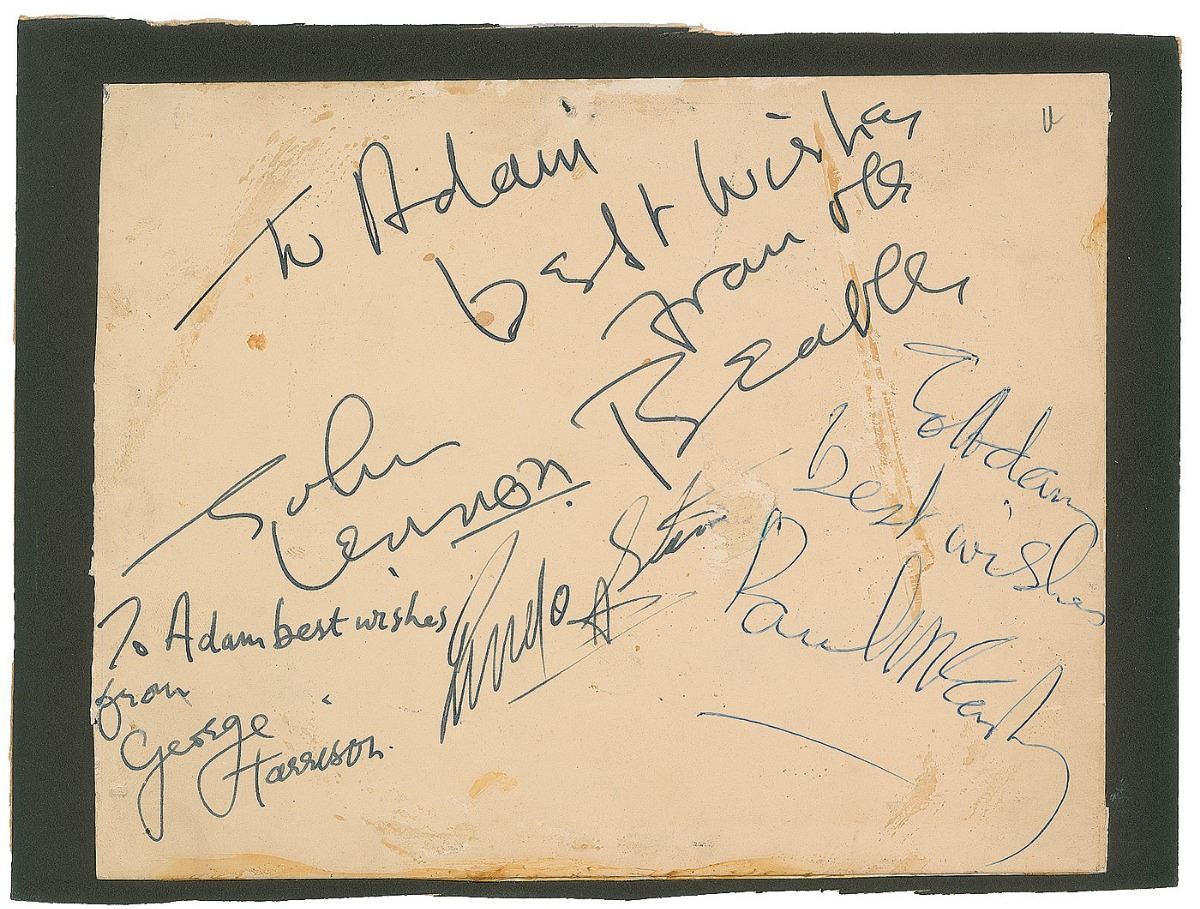 To Adam
best wishes
from the
Beatles
John
Lennon
To Adam
best wishes
Paul McCartney
Ringo Starr
To Adam best wishes
from
George
Harrison